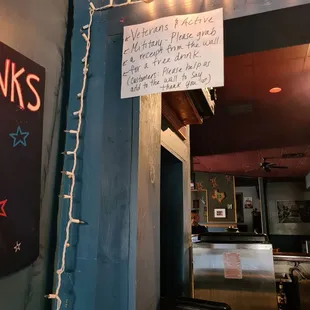 NKS
* Veterans & Active
* Military: Please grab
* a receipt from the wall
* for a free drink.
(Customers: Please help us
add to the wall to say
thank you!)